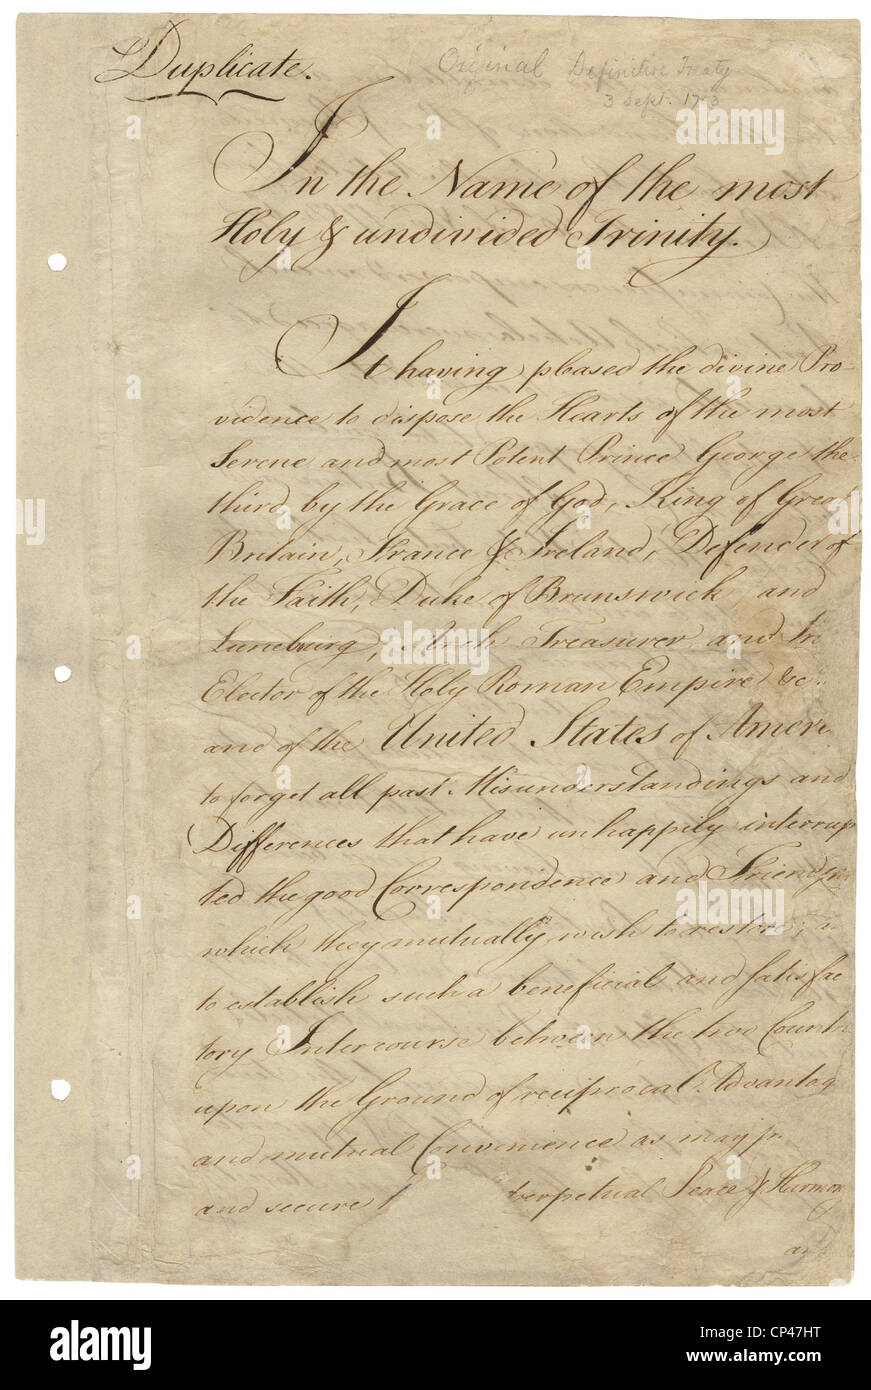 Duplicate.
Original Definitive Treaty
3 Sept. 1783
In the Name of the most
Holy & undivided Trinity.
It having pleased the divine Pro-
vidence to dispose the Hearts of the most
Serene and most Potent Prince George the
third, by the Grace of God, King of Great
Britain, France & Ireland, Defender of
the Faith, Duke of Brunswick and
Luneburg, Arch Treasurer, and
Elector of the Holy Roman Empire &c.
and of the United States of Ameri
to forget all past Misunderstandings and
Differences that have unhappily interrup
ted the good Correspondence and
which they mutually wish to restore;
to establish such a beneficial and satisfac
tory Intercourse between the two Countr
upon the Ground of reciprocal Advantag
and mutual Convenience as may
and secure perpetual Peace & Harmony
alamy
Image ID: CP47HT
www.alamy.com